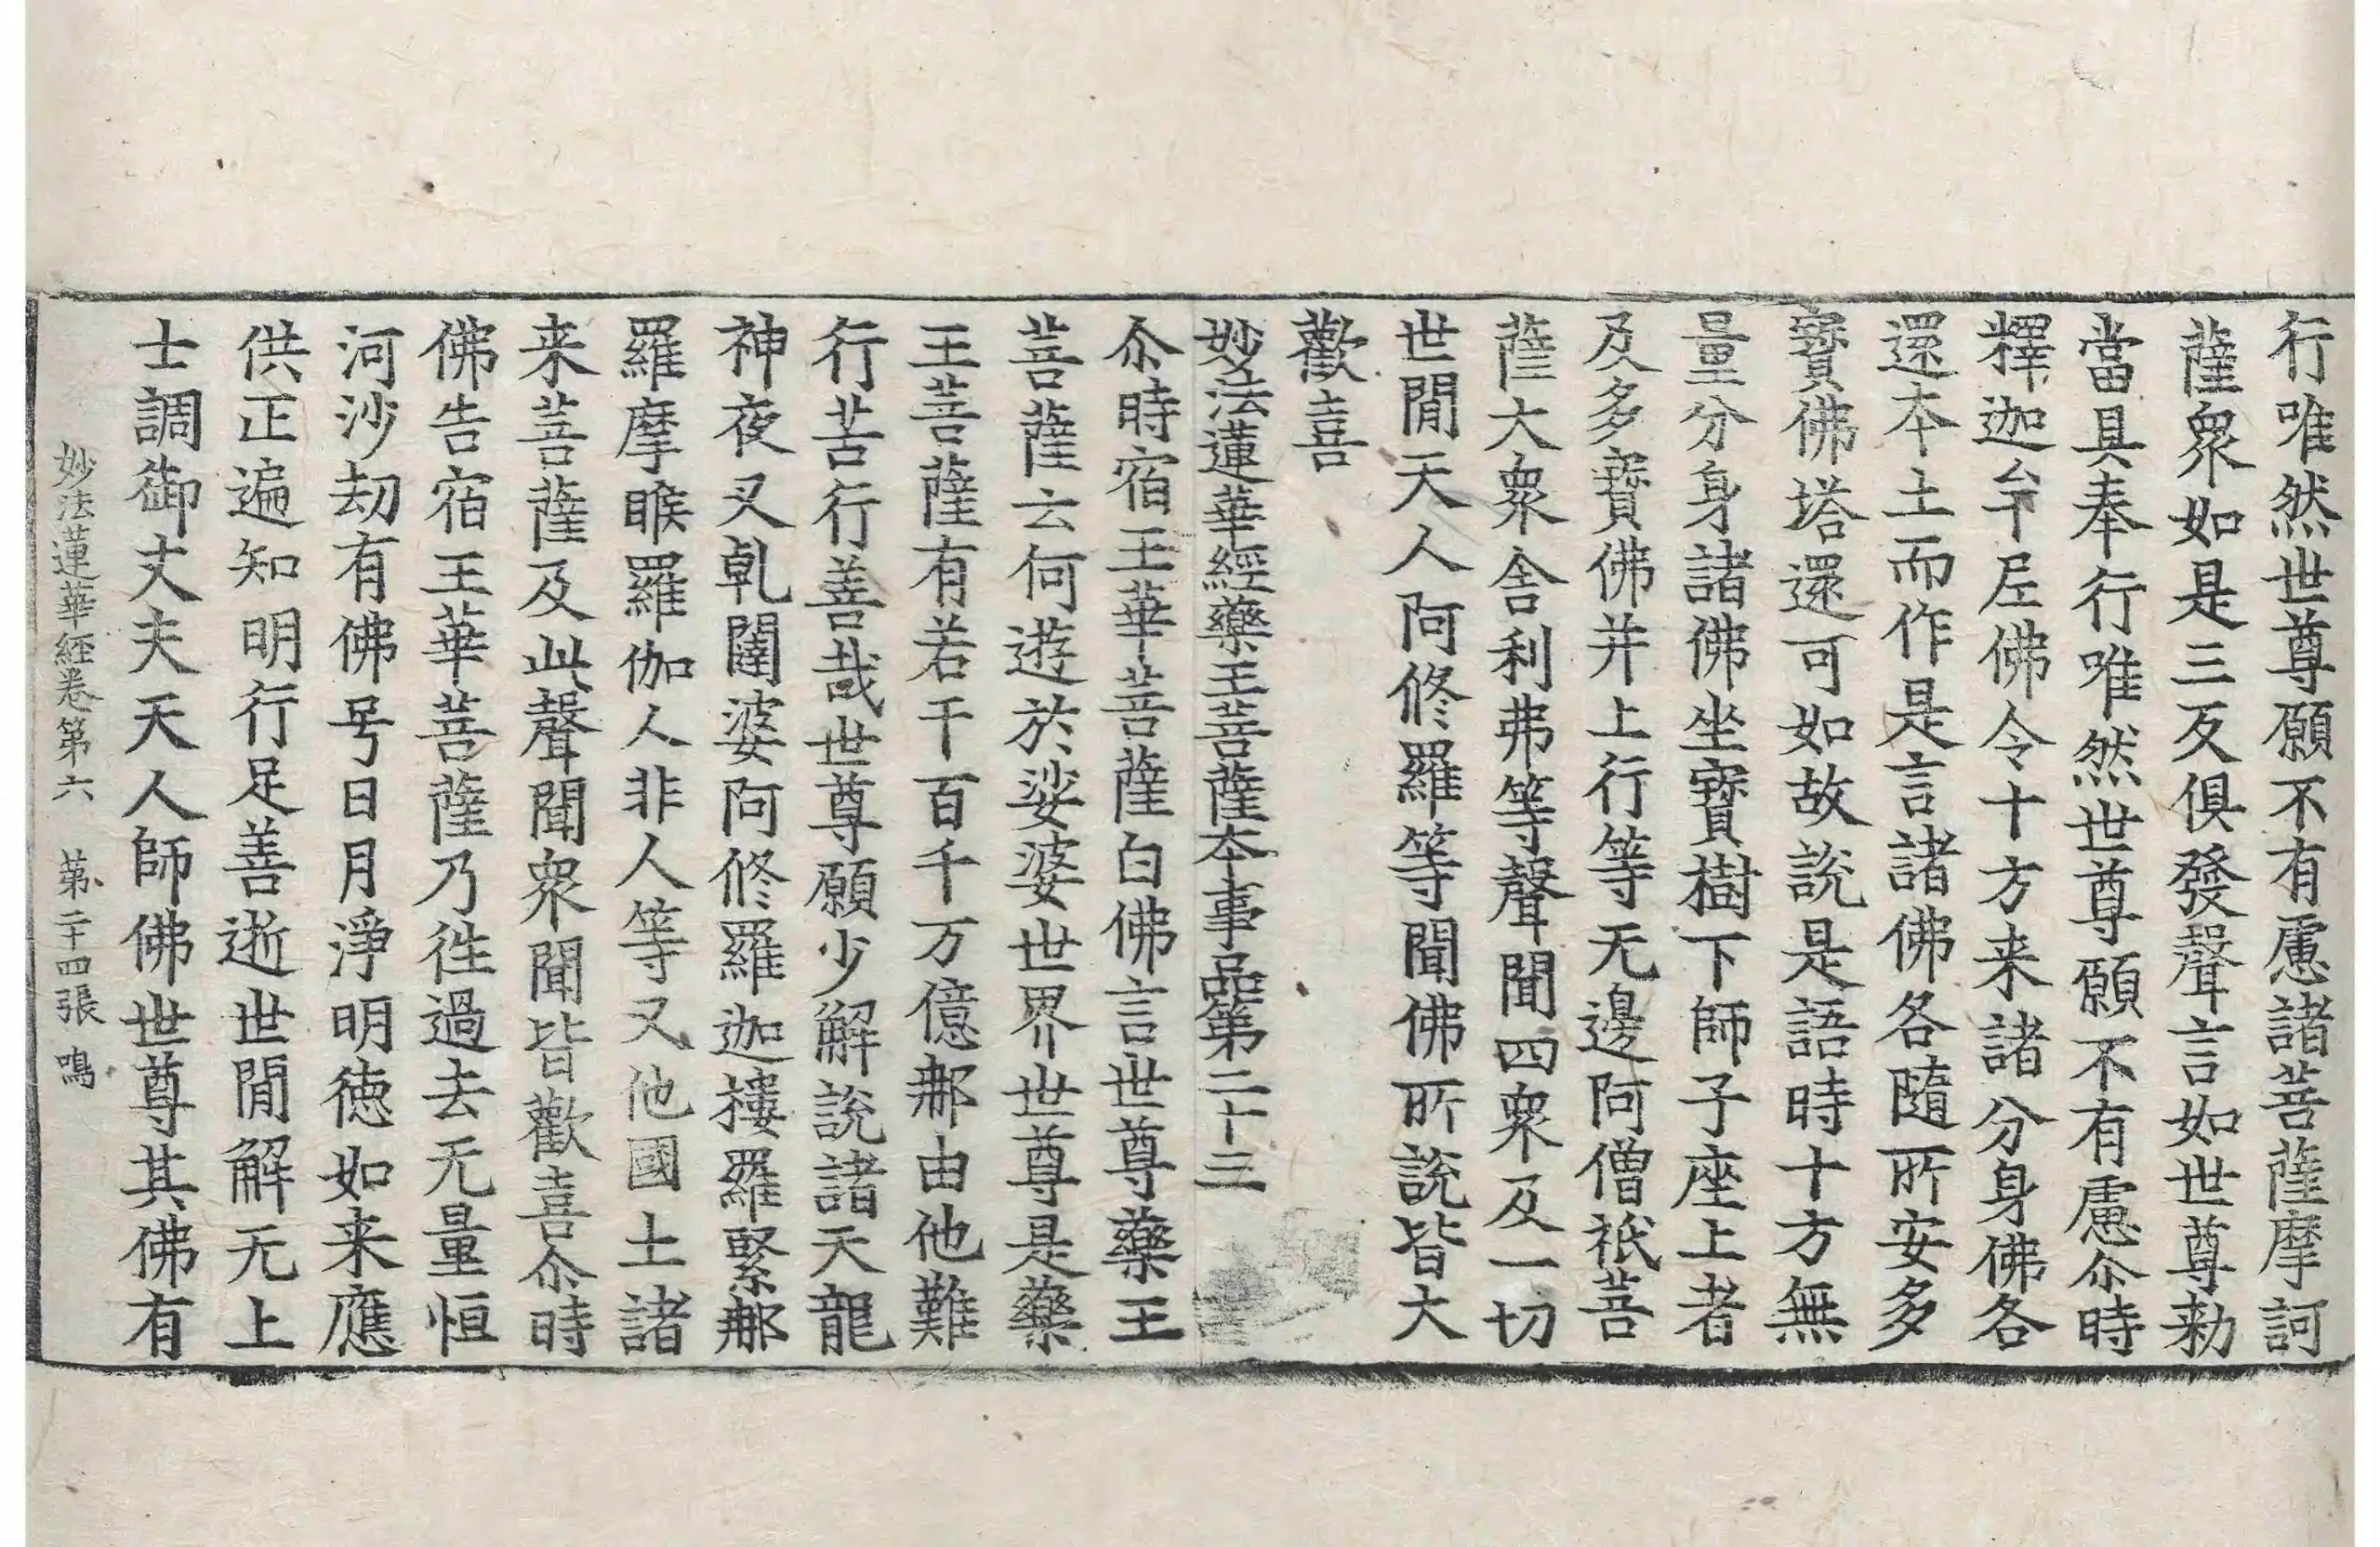 行唯然世尊願不有慮諸菩薩摩訶
薩衆如是三反俱發聲言如世尊勑
當具奉行唯然世尊願不有慮尒時
釋迦牟尼佛令十方来諸分身佛各
還本土而作是言諸佛各隨所安多
寳佛塔還可如故說是語時十方無
量分身諸佛坐寳樹下師子座上者
及多寳佛并上行等无邊阿僧祇菩
薩大衆舍利弗等聲聞四衆及一切
世間天人阿修羅等聞佛所說皆大
歡喜
妙法蓮華經藥王菩薩本事品第二十三
尒時宿王華菩薩白佛言世尊藥王
菩薩云何遊於娑婆世界世尊是藥
王菩薩有若干百千万億那由他難
行苦行善哉世尊願少解說諸天龍
神夜叉乹闥婆阿修羅迦樓羅緊那
羅摩睺羅伽人非人等又他國土諸
来菩薩及此聲聞衆聞皆歡喜尒時
佛告宿王華菩薩乃徃過去无量恒
河沙劫有佛号日月淨明德如来應
供正遍知明行足善逝世間解无上
士調御丈夫天人師佛世尊其佛有
妙法蓮華経卷第六 第二十四張 鳴